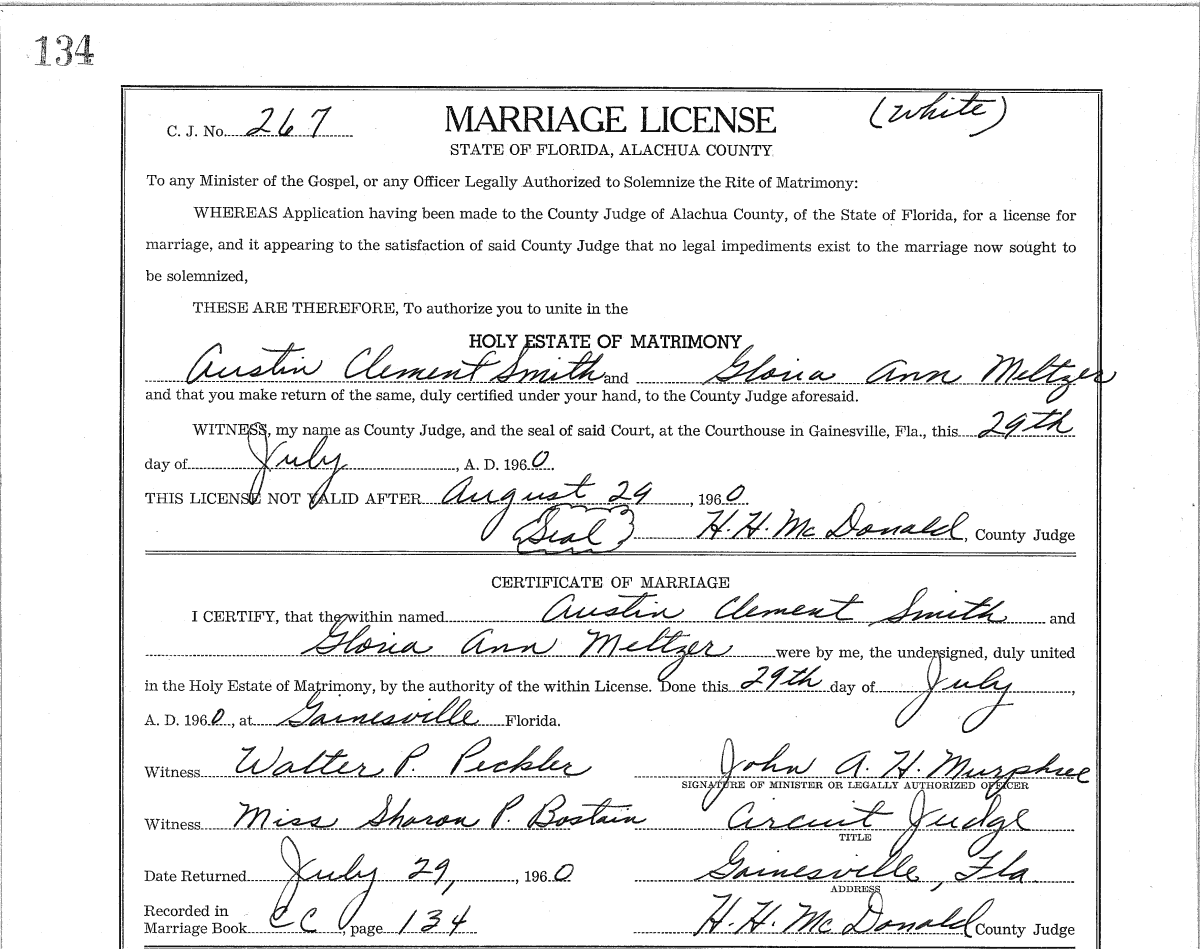 134
C. J. No. 267 MARRIAGE LICENSE (White)
STATE OF FLORIDA, ALACHUA COUNTY
To any Minister of the Gospel, or any Officer Legally Authorized to Solemnize the Rite of Matrimony:
WHEREAS Application having been made to the County Judge of Alachua County, of the State of Florida, for a license for
marriage, and it appearing to the satisfaction of said County Judge that no legal impediments exist to the marriage now sought to
be solemnized,
THESE ARE THEREFORE, To authorize you to unite in the
HOLY ESTATE OF MATRIMONY
Austin Clement Smith and Gloria Ann Meltzer
and that you make return of the same, duly certified under your hand, to the County Judge aforesaid.
WITNESS, my name as County Judge, and the seal of said Court, at the Courthouse in Gainesville, Fla., this 29th
day of July, A. D. 1960.
THIS LICENSE NOT VALID AFTER August 29, 1960
Seal H. H. McDonald, County Judge
CERTIFICATE OF MARRIAGE
I CERTIFY, that the within named Austin Clement Smith and
Gloria Ann Meltzer were by me, the undersigned, duly united
in the Holy Estate of Matrimony, by the authority of the within License. Done this 29th day of July,
A. D. 1960, at Gainesville Florida.
Witness Walter P. Peckler John A. H. Murphree
SIGNATURE OF MINISTER OR LEGALLY AUTHORIZED OFFICER
Witness Miss Sharon P. Bostain Circuit Judge
TITLE
Date Returned July 29, , 1960 Gainesville, Fla
ADDRESS
Recorded in
Marriage Book CC, page 134 H. H. McDonald County Judge